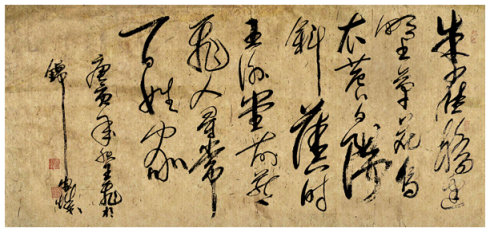 朱雀橋邊
野草花烏
衣巷口夕陽
斜舊時
王謝堂前燕
飛入尋常
百姓家
庚寅年於
錦